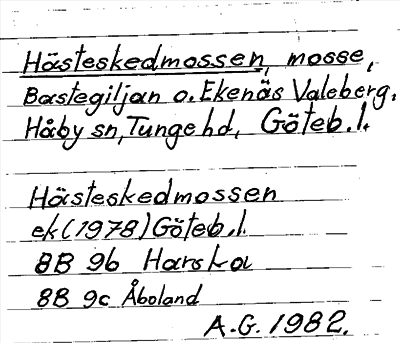 Hästeskedmossen, mosse,
Bastegiljan o. Ekenäs Valeberg.
Håby sn, Tunge hd, Göteb. l.
Hästeskedmossen
ek (1978) Göteb. l.
8B 9b Harska
8B 9c Åboland
A.G. 1982.